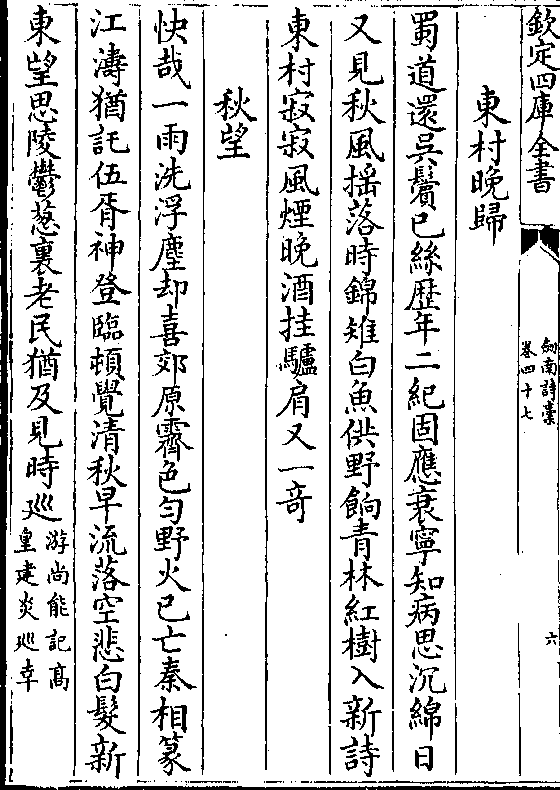 欽定四庫全書
劒南詩槀
卷四十七
六
東村晚歸
蜀道還吳鬢已絲歴年二紀固應衰寧知病思沉綿日
又見秋風揺落時錦雉白魚供野餉青林紅樹入新詩
東村寂寂風煙晚酒挂驢肩又一竒
秋望
快哉一雨洗浮塵却喜郊原霽色勻野火已亡秦相篆
江濤猶託伍胥神登臨頓覺清秋早流落空悲白髮新
東望思陵鬱葱裏老民猶及見時廵
游尚能記髙
皇建炎廵幸